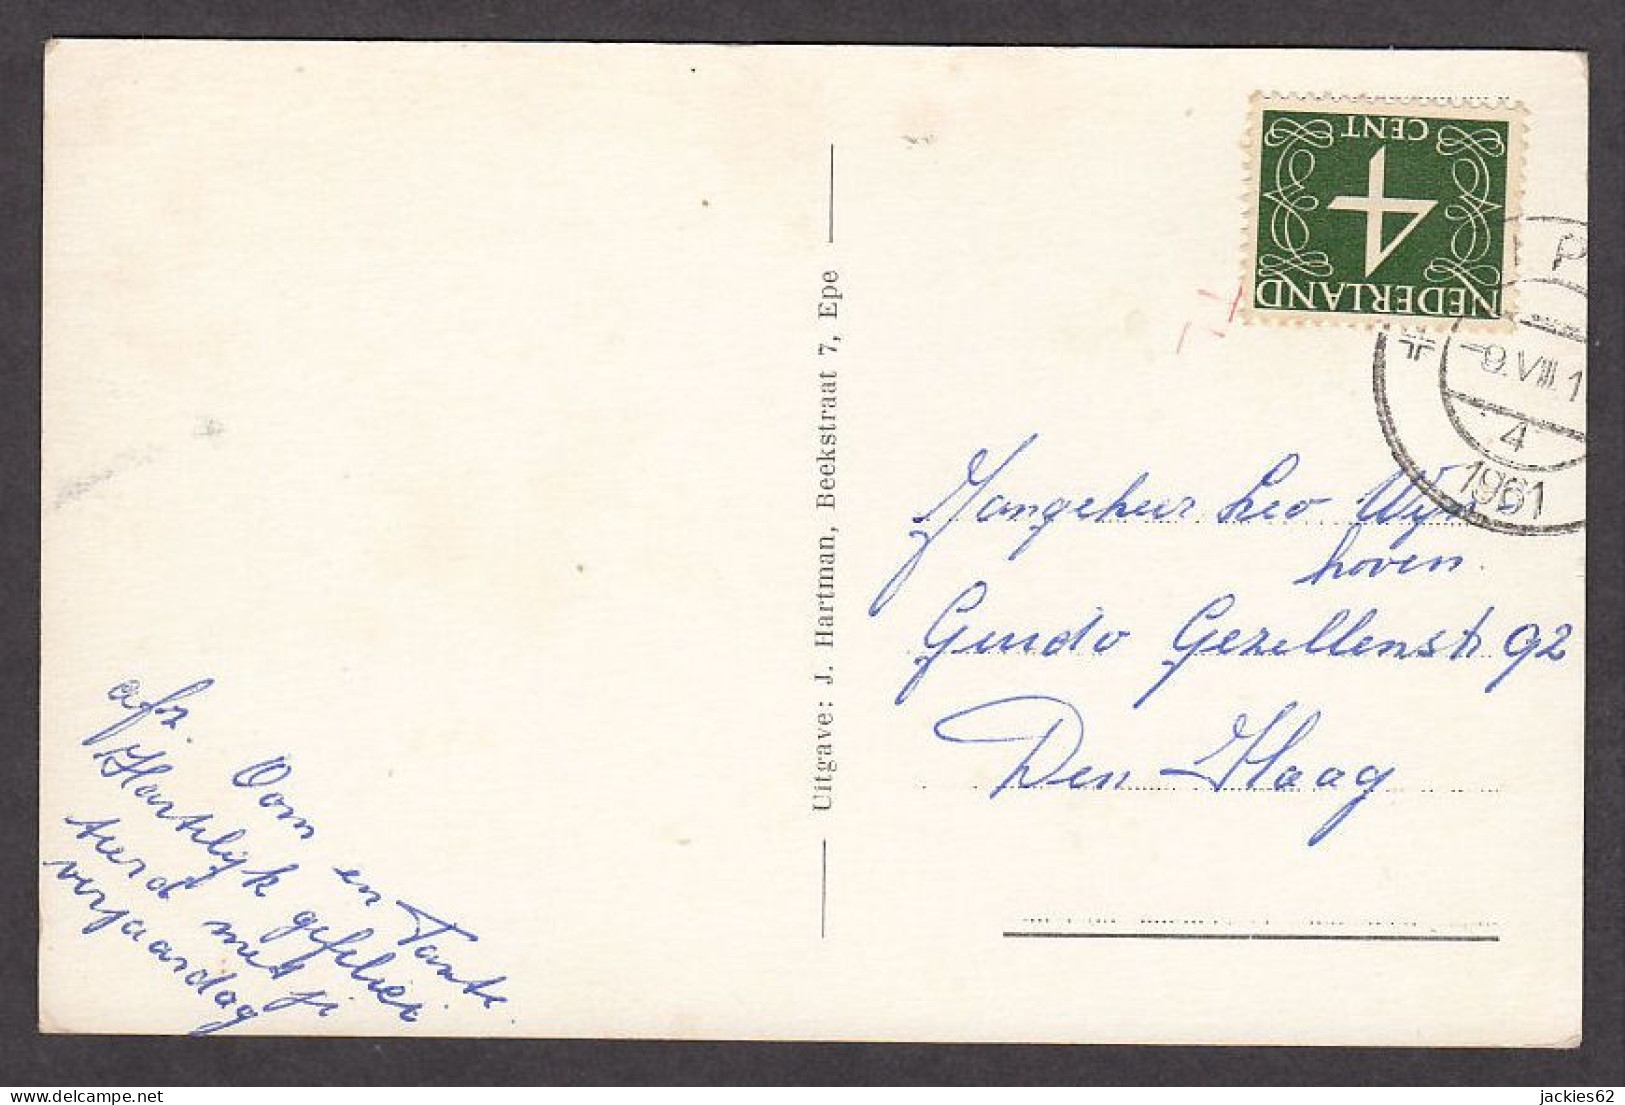 afz. Oom en Tante.
Hartelijk gefelici
teerd met je
verjaardag
Uitgave: J. Hartman, Beekstraat 7, Epe
NEDERLAND
4
CENT
P
-9.VIII.1
4
1961
Jongeheer Leo Wijn
hoven.
Guido Gezellenstr 92
Den Haag
jackies62